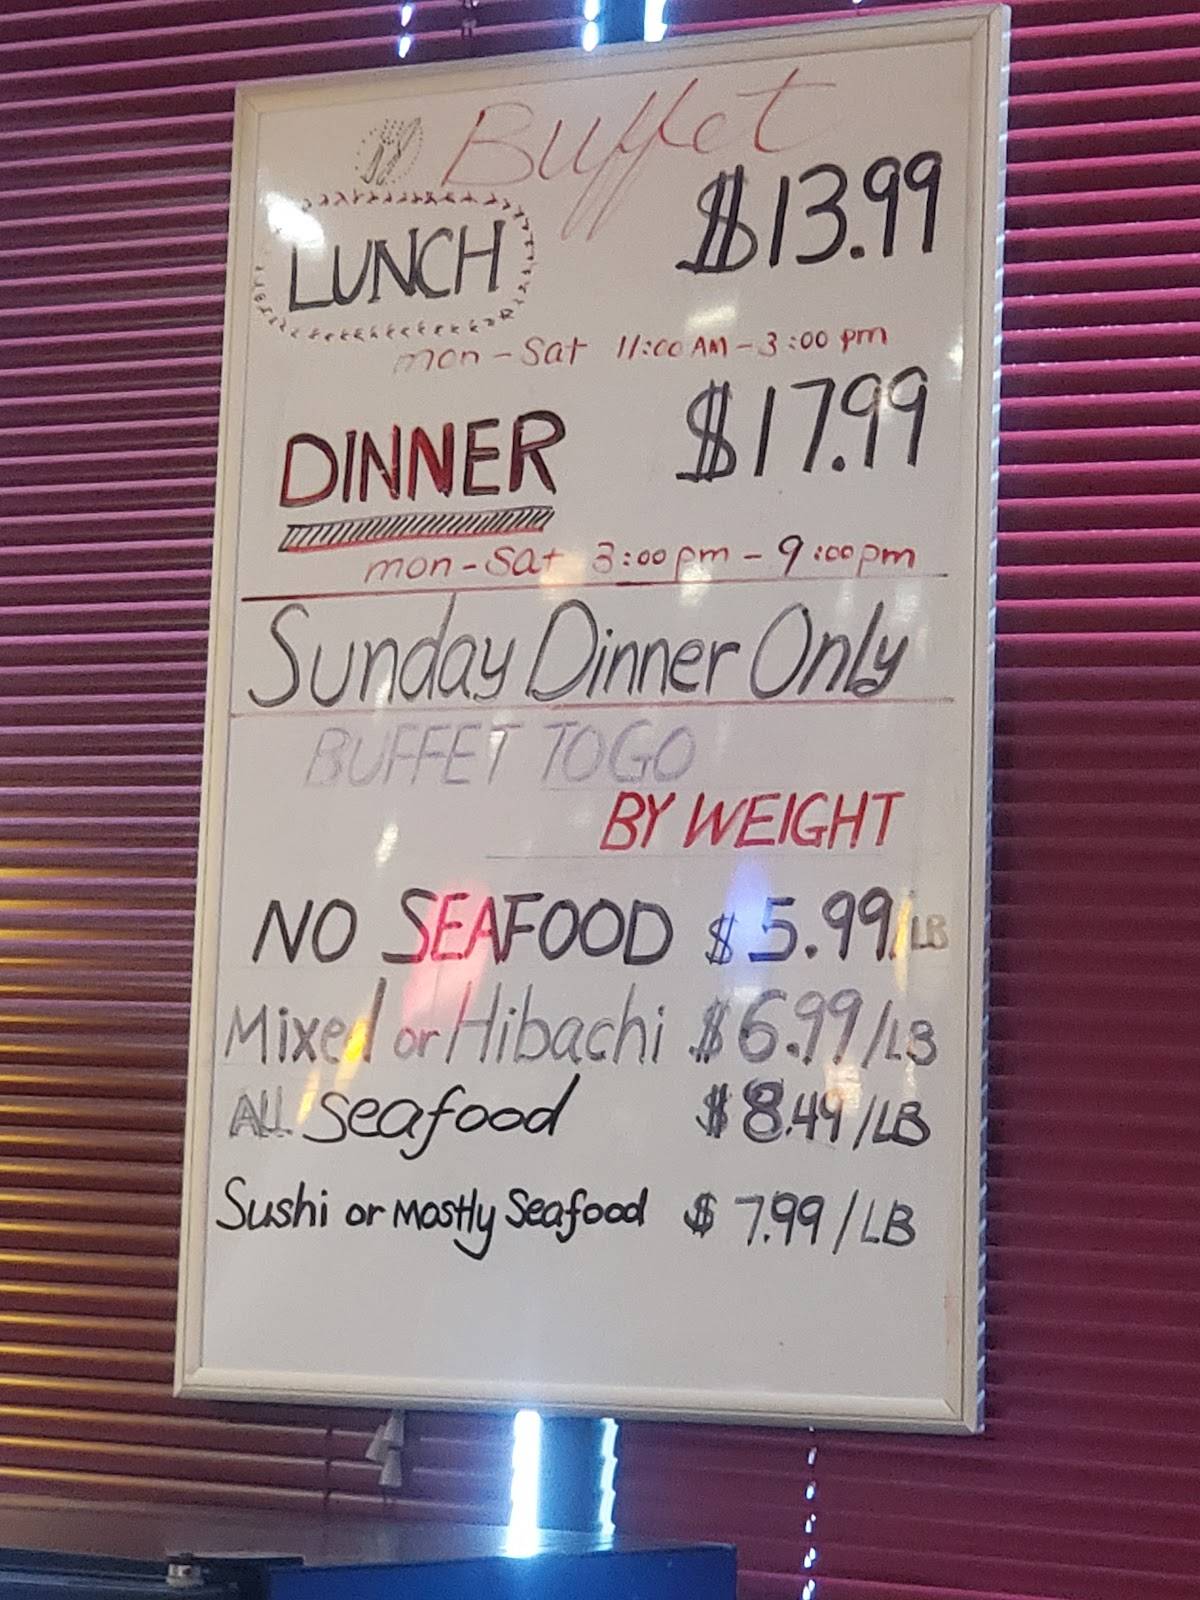 Buffet
LUNCH $13.99
mon - Sat 11:00 AM - 3:00 pm
DINNER $17.99
mon - Sat 3:00 pm - 9:00 pm
Sunday Dinner Only
BUFFET TO GO
BY WEIGHT
NO SEAFOOD $5.99/LB
Mixed or Hibachi $6.99/LB
ALL Seafood $8.49/LB
Sushi or Mostly Seafood $7.99/LB